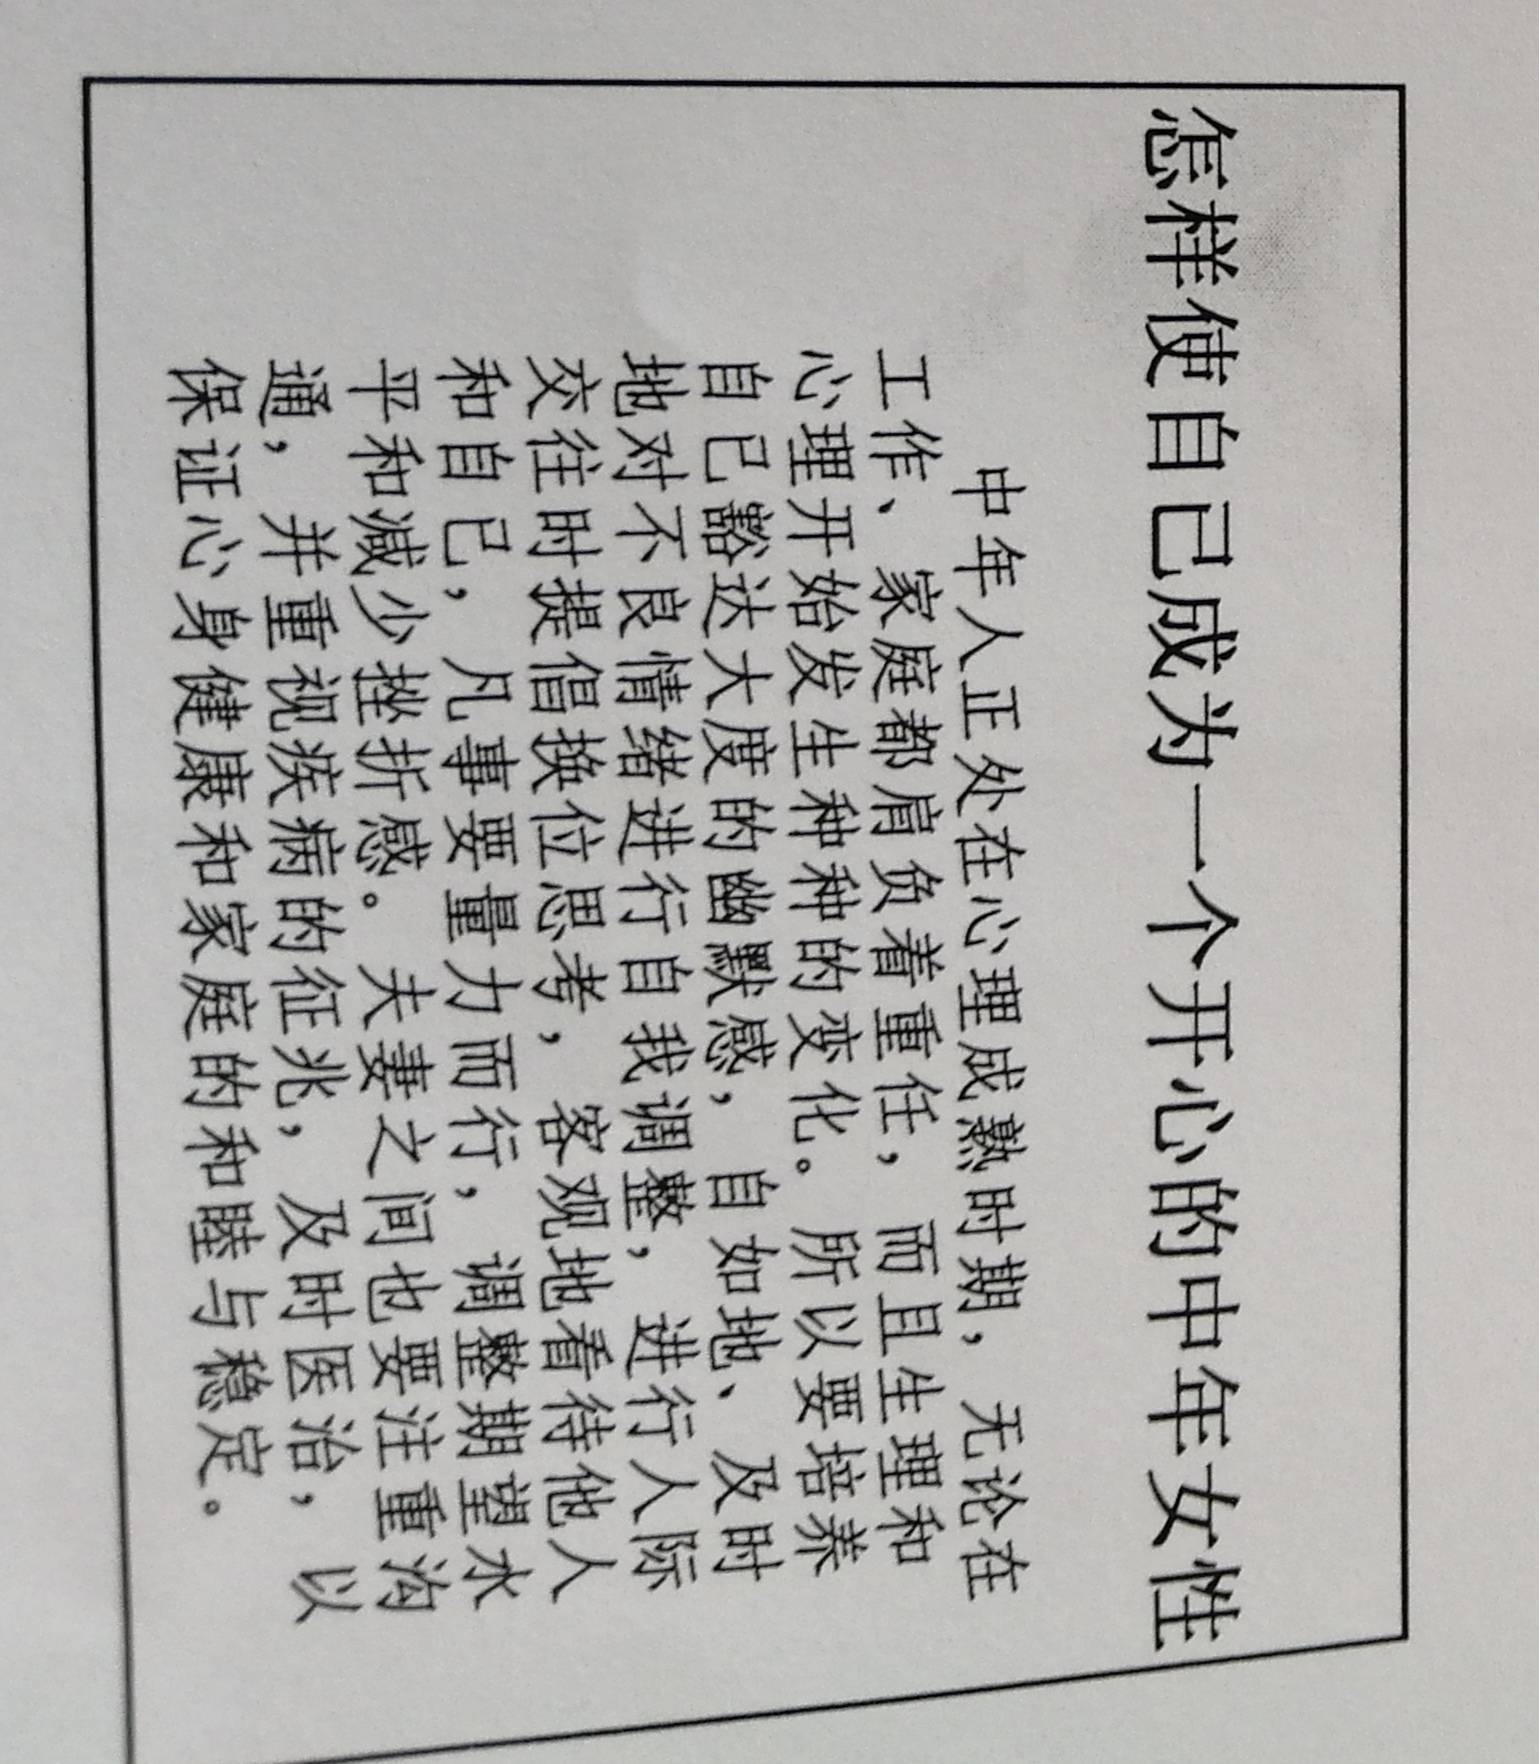 怎样使自己成为一个开心的中年女性
中年人正处在心理成熟时期，无论在
工作、家庭都肩负着重任，而且生理和
心理开始发生种种的变化。所以要培养
自己豁达大度的幽默感，自如地、及时
地对不良情绪进行自我调整，进行人际
交往时提倡换位思考，客观地看待他人
和自己，凡事要量力而行，调整期望水
平和减少挫折感。夫妻之间也要注重沟
通，并重视疾病的征兆，及时医治，以
保证心身健康和家庭的和睦与稳定。